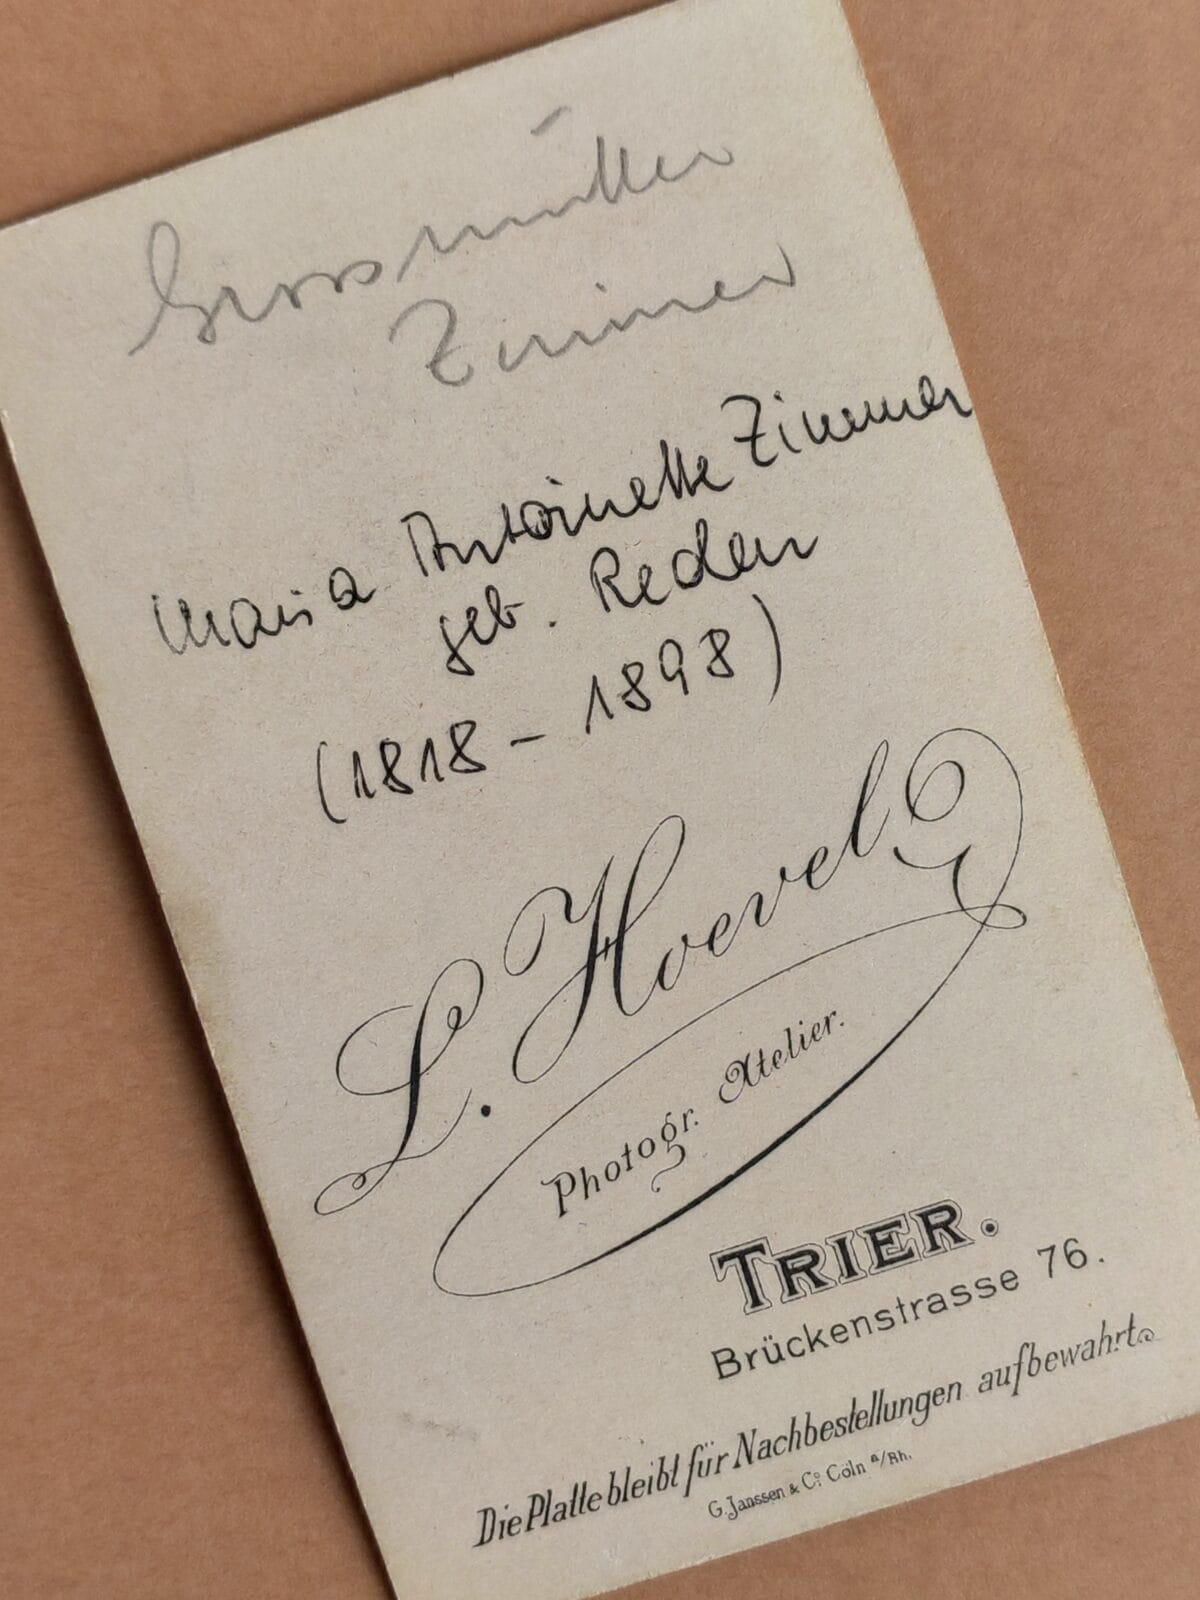 Grossmutter
Zimmer
Maria Antoinette Zimmer
geb. Reden
(1818 - 1898)
L. Hoevel
Photogr. Atelier.
TRIER.
Brückenstrasse 76.
Die Platte bleibt für Nachbestellungen aufbewahrt.
G. Janssen & Co. Cöln a/Rh.